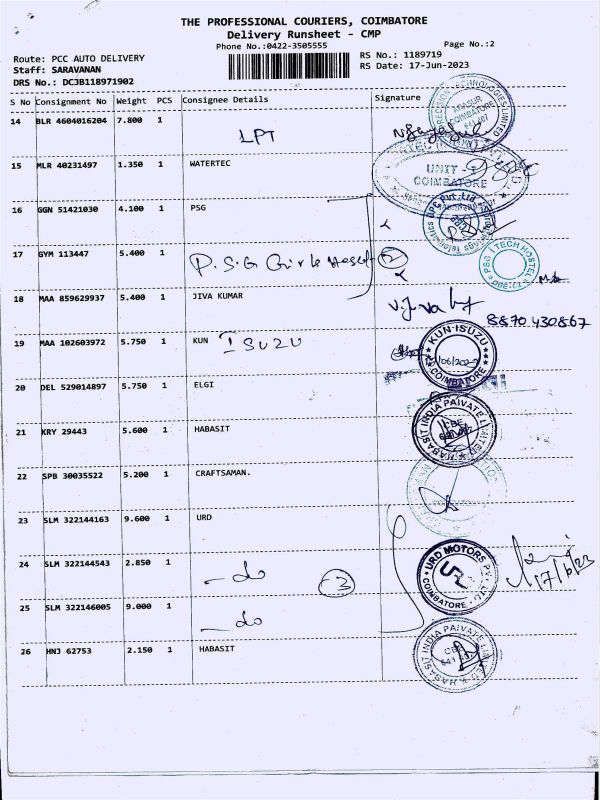 THE PROFESSIONAL COURIERS, COIMBATORE
Delivery Runsheet - CMP
Phone No.:0422-3505555 Page No.:2
Route: PCC AUTO DELIVERY RS No.: 1189719
Staff: SARAVANAN RS Date: 17-Jun-2023
DRS No.: DCJB118971902
S No Consignment No Weight PCS Consignee Details Signature
14 BLR 4604016204 7.800 1 LPT
15 MLR 40231497 1.350 1 WATERTEC
UNIT - I
COIMBATORE
16 GGN 51421030 4.100 1 PSG
17 GYM 113447 5.400 1 P.S.G Girls Hostel 2
PSG I TECH HOSTEL
18 MAA 859629937 5.400 1 JIVA KUMAR
8870 430867
19 MAA 102603972 5.750 1 KUN ISUZU
KUN-ISUZU
COIMBATORE
20 DEL 529014897 5.750 1 ELGI
21 KRY 29443 5.600 1 HABASIT
HABASIT INDIA PAIVATE LIMITED
22 SPB 30035522 5.200 1 CRAFTSAMAN.
23 SLM 322144163 9.600 1 URD
24 SLM 322144543 2.850 1 - do -3
URD MOTORS PVT. LTD.
COIMBATORE
17/6/23
25 SLM 322146005 9.000 1 - do
26 HNJ 62753 2.150 1 HABASIT
HABASIT INDIA PAIVATE LIMITED